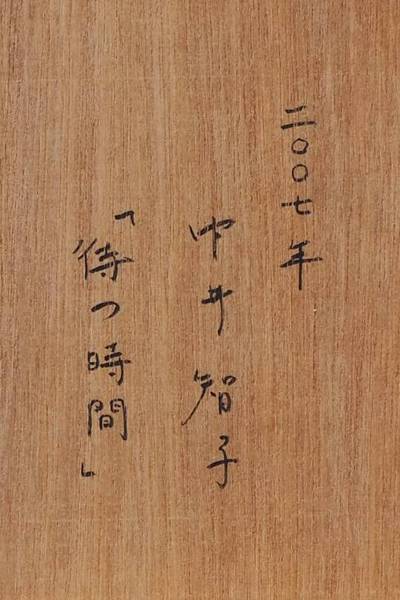 二〇〇七年
中井智子
「待つ時間」